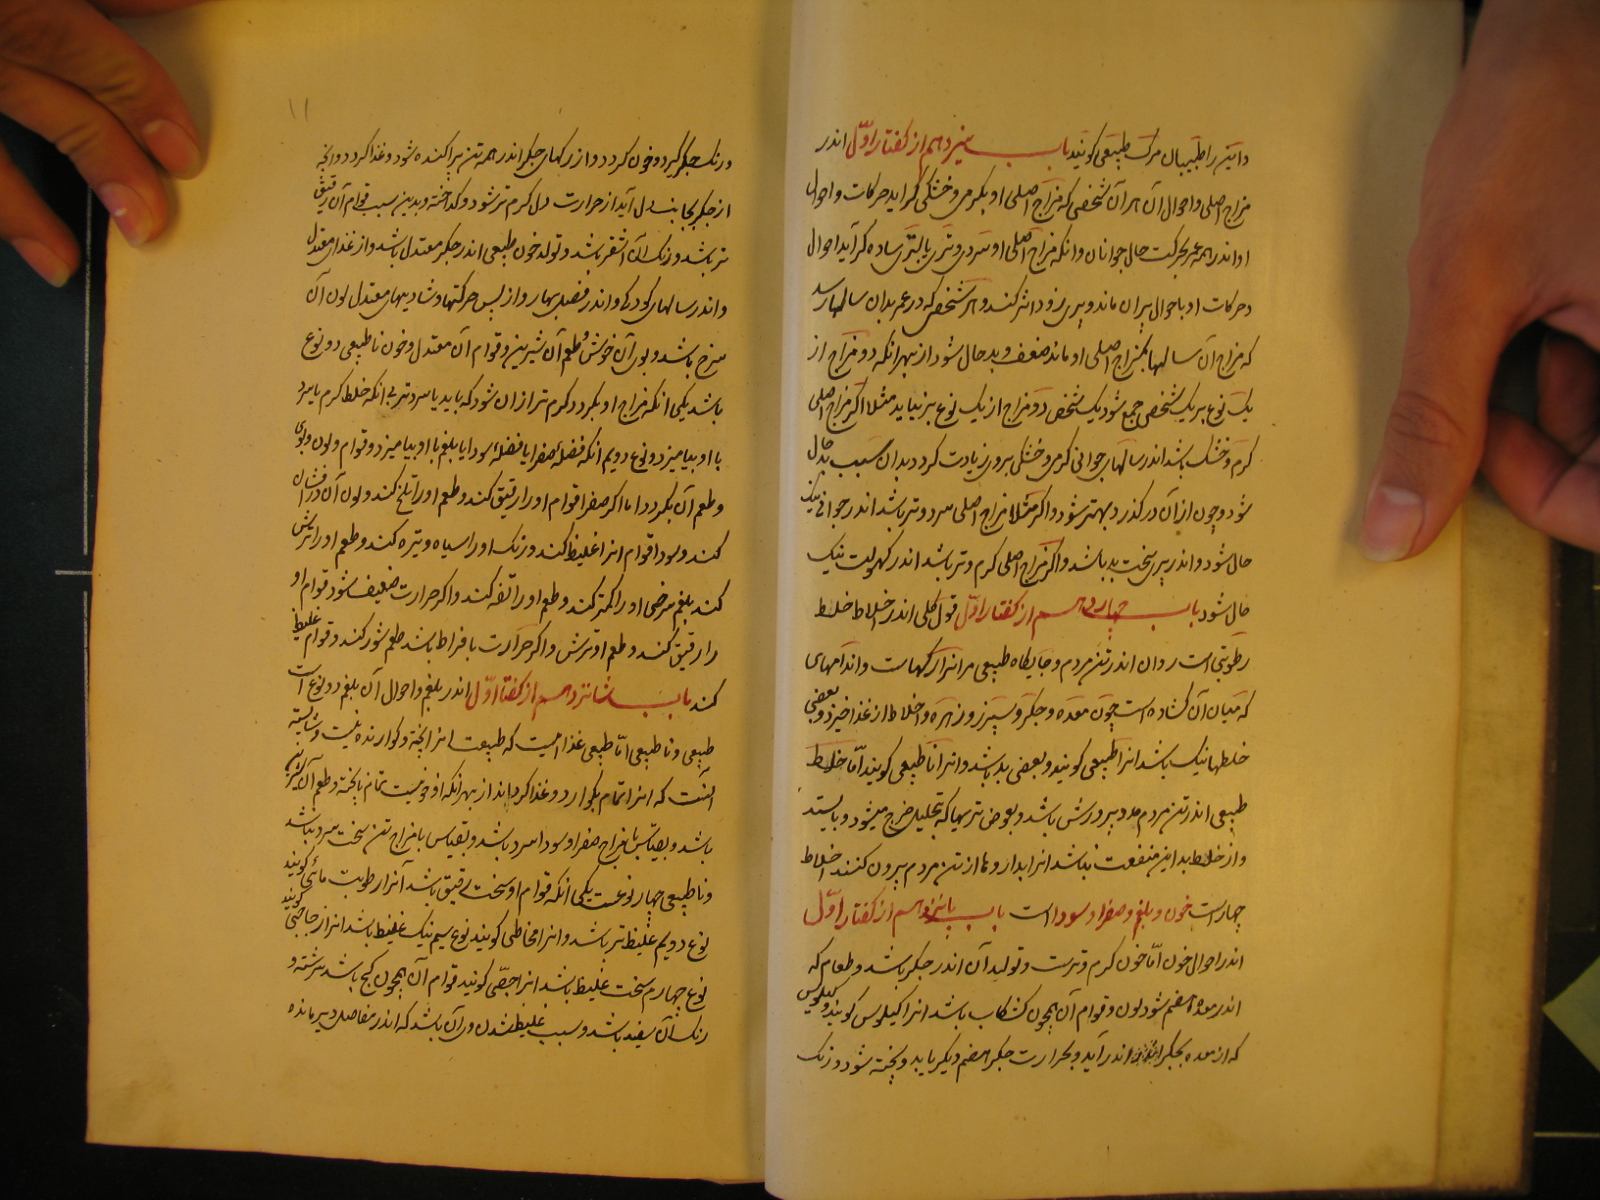 و این را طبیبان مرکب طبیعی کویند باب سیزدهم از کفتار اوّل اندر
مزاج اصلی و احوال آن هر آن شخصی که مزاج اصلی او بکرمی و خشکی کراید حرکات و احوال
او اندر همه عمر بحرکت حال جوانان و انکه مزاج اصلی او سردی و تری یا تری ساده کراید احوال
و حرکات او باحوال پیران ماند و پیری زود اثر کند و هر شخصی که در عمر بدان سالها رسد
که مزاج آن سالها بمزاج اصلی او ماند ضعف و بد حال شود از بهر انکه دو مزاج از
یک نوع بر یک شخصی جمع شود یک شخص دو مزاج از یک نوع بر نیاید مثلا اکر مزاج اصلی
کرم و خشک باشد اندر سالهای جوانی کرمی و خشکی بروی زیادت کردد بدان سبب بد حال
شود و چون از آن در کذرد بهتر شود و اکر مثلا مزاج اصلی سرد و تر باشد اندر جوانی نیک
حال شود و اندر پیری سخت بد باشد و اکر مزاج اصلی کرم و تر باشد اندر کهولت نیک
حال شود باب چهاردهم از کفتار اوّل قول کلی اندر اخلاط خلط
رطوبتی است روان اندر تن مردم و جایکاه طبیعی مر انرا رکهاست و اندامهای
که میان آن کشاده است چون معده و جکر و سپرز و زهره و اخلاط از غذا خیزد و بعضی
خلطها نیک باشد انرا طبیعی کویند و بعضی بد باشد و انرا نا طبیعی کویند امّا خلط
طبیعی اندر تن مردم مدد پرورش باشد و بعوض تریها که بتحلیل خرج میشود و بایستد
و از خلط بد این منفعت نباشد انرا بداروها از تن مردم بیرون کنند اخلاط
چهار است خون و بلغم و صفرا و سودا است باب پانزدهم از کفتار اوّل
اندر احوال خون امّا خون کرم و ترست و تولید آن اندر جکر باشد و طعام که
اندر معده هضم شود لون و قوام آن همچون کشکاب باشد انرا کیلوس کویند و کیلوس
که از معده بجکر اندر آید و بحرارت جکر هضم دیکر یابد و پخته شود و رنک
۱۱
و رنک جکر کیرد و خون کردد و از رکهای جکر اندر همه تن پراکنده شود و غذا کردد و انچه
از جکر بجانب دل آید از حرارت دل کرم تر شود و کداخته و بدین سبب قوام آن رقیق
تر باشد و رنک آن اشقر باشد و تولد خون طبیعی اندر جکر معتدل باشد و از غذای معتدل
و اندر سالهای کودکی و اندر فصل بهار و از پس حرکتها و شادیهای معتدل لون آن
سرخ باشد و بوی آن خوش و طعم آن شیرین و قوام آن معتدل و خون نا طبیعی دو نوع
باشد یکی انکه مزاج او بکردد کرم تر از ان شود که باید یا سردتر بی انکه خلط کرم یا سرد
با او بیامیزد و نوع دویم انکه فضلهٔ صفرا یا فضلهٔ سودا یا بلغم با او بیامیزد و قوام و لون و بوی
و طعم آن بکردد اما اکر صفرا قوام او را رقیق کند و طعم او را تلخ کند و لون آن درفشان
کند و سودا قوام انرا غلیظ کند و رنک او را سیاه و تیره کند و طعم او را ترش
کند بلغم سرخی او را کمتر کند و طعم او را تفه کند و اکر حرارت ضعیف شود قوام او
را رقیق کند و طعم او ترش و اکر حرارت بافراط باشد طعم شور کند و قوام غلیظ
کند باب شانزدهم از کفتار اوّل اندر بلغم و احوال آن بلغم دو نوع است
طبیعی و نا طبیعی امّا طبیعی غذائیست که طبیعت انرا پخته و کوارنده نیست و شایسته
آنست که انرا تمام بکوارد و غذا کرداند از بهر انکه او خونیست تمام نا پخته و طعم آن شیرین
باشد و بقیاس با مزاج صفرا و سودا سرد باشد و بقیاس با مزاج تن سخت سرد نباشد
و نا طبیعی چهار نوعست یکی انکه قوام او سخت رقیق باشد آنرا رطوبت مائی کویند
نوع دویم غلیظ تر باشد و انرا مخاطی کویند نوع سیم نیک غلیظ باشد انرا زجاجی کویند
نوع چهارم سخت غلیظ باشد انرا جصّی کویند قوام آن همچون کج باشد سرشته و
رنک آن سفید باشد و سبب غلیظ شدن وی آن باشد که اندر مفاصل دیر مانده